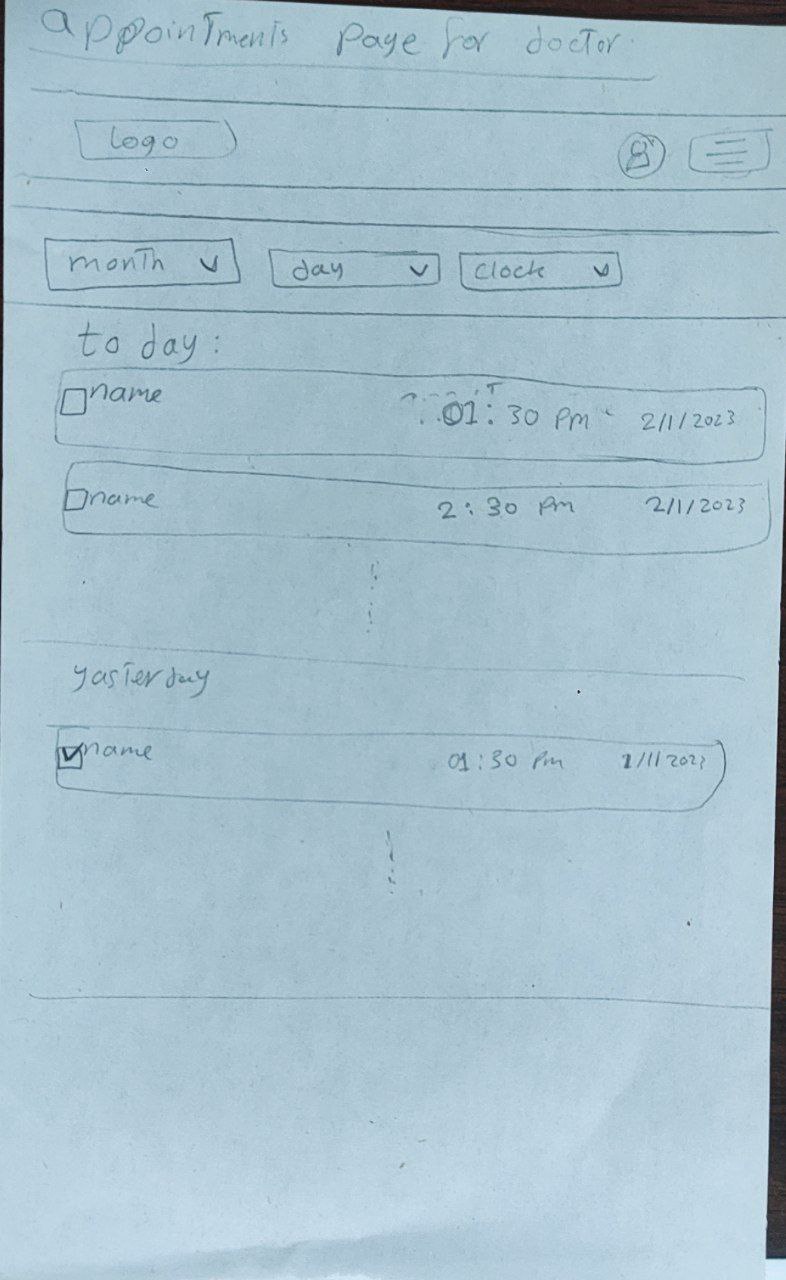 appointments page for doctor
logo
month day clock
to day:
name 01:30 pm 2/1/2023
name 2:30 pm 2/1/2023
yasterday
name 01:30 pm 1/1/2023